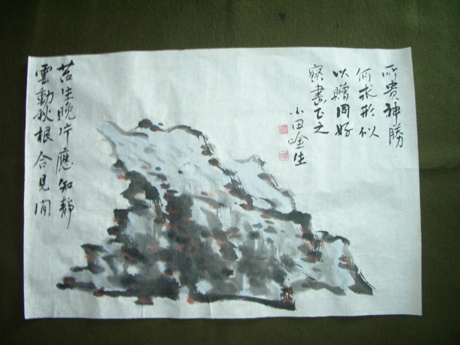 所貴神勝
何求形似
以贈同好
書正之
小田生
苔生晚片應知靜
雲動秋根合見閒